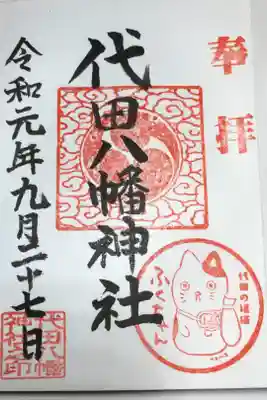 奉拝
代田八幡神社
令和元年九月二十七日
代田の道場
ふくちゃん